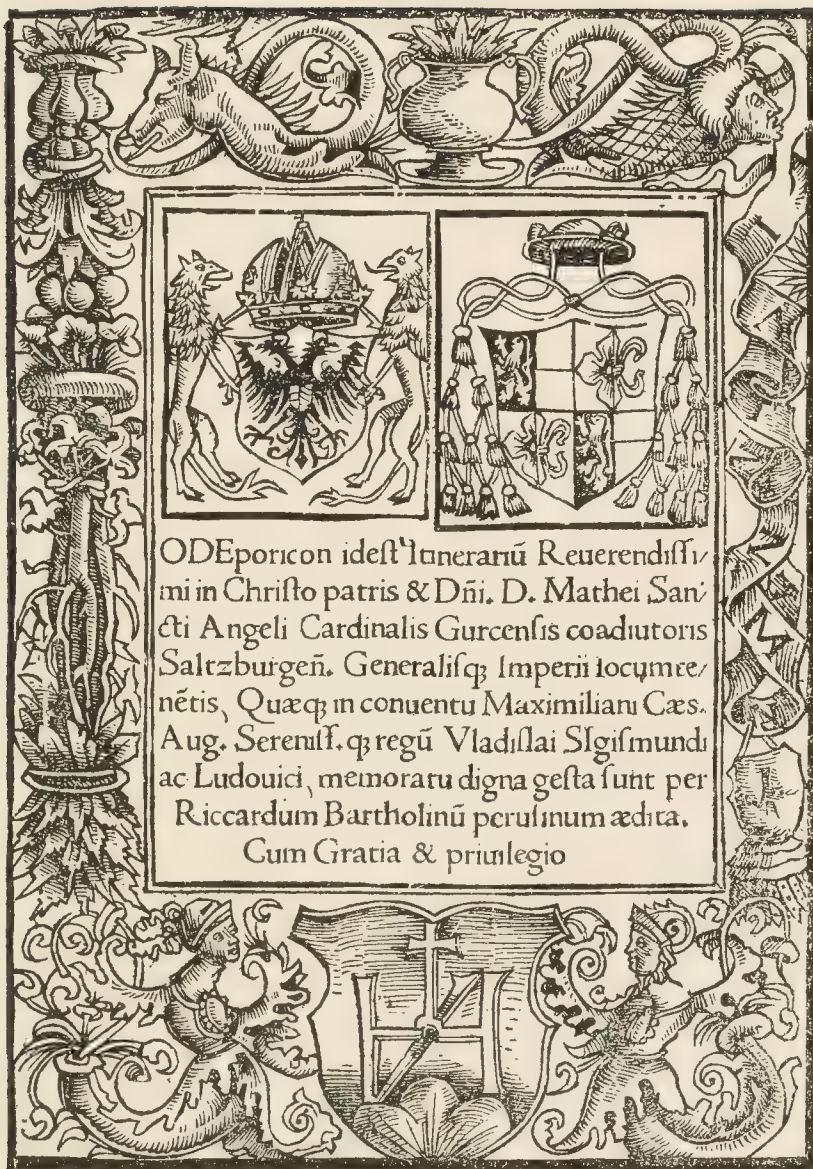 ODEporicon idest Itinerariū Reuerendissi/
mi in Christo patris & Dn̄i. D. Mathei San/
cti Angeli Cardinalis Gurcensis coadiutoris
Saltzburgen̄. Generalisqꝫ Imperii locumte/
nētis, Quæqꝫ in conuentu Maximiliani Cæs.
Aug. Sereniss.qꝫ regū Vladislai SIgismundi
ac Ludouici, memoratu digna gesta sunt per
Riccardum Bartholinū perusinum ædita.
Cum Gratia & priuilegio